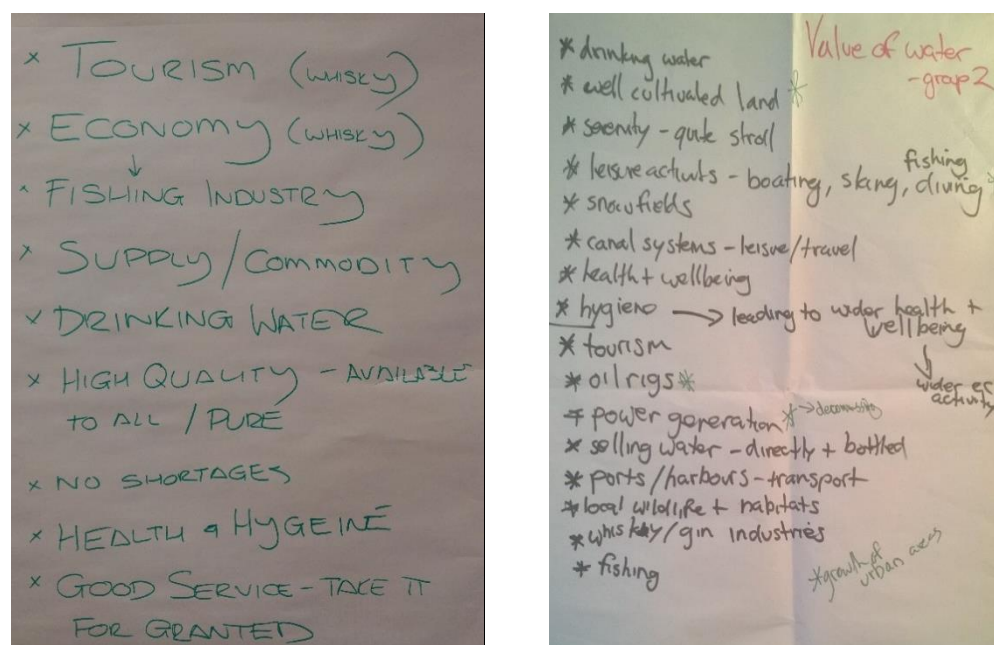 × TOURISM (WHISKY)
× ECONOMY (WHISKY)
↓
× FISHING INDUSTRY
× SUPPLY/COMMODITY
× DRINKING WATER
× HIGH QUALITY - AVAILABLE
TO ALL / PURE
× NO SHORTAGES
× HEALTH & HYGEINE
× GOOD SERVICE - TAKE IT
FOR GRANTED
Value of water
- group 2
* drinking water
* well cultivated land *
* serenity - quite stroll
fishing
* leisure activits - boating, skiing, diving
* snowfields
* canal systems - leisure/travel
* health + wellbeing
* hygiene → leading to wider health +
wellbeing
↓
wider ec
activity
* tourism
* oil rigs *
* power generation * →
* selling water - directly + bottled
* ports/harbours - transport
* local wildlife + habitats
* whiskey/gin industries
* fishing
* growth of
urban areas